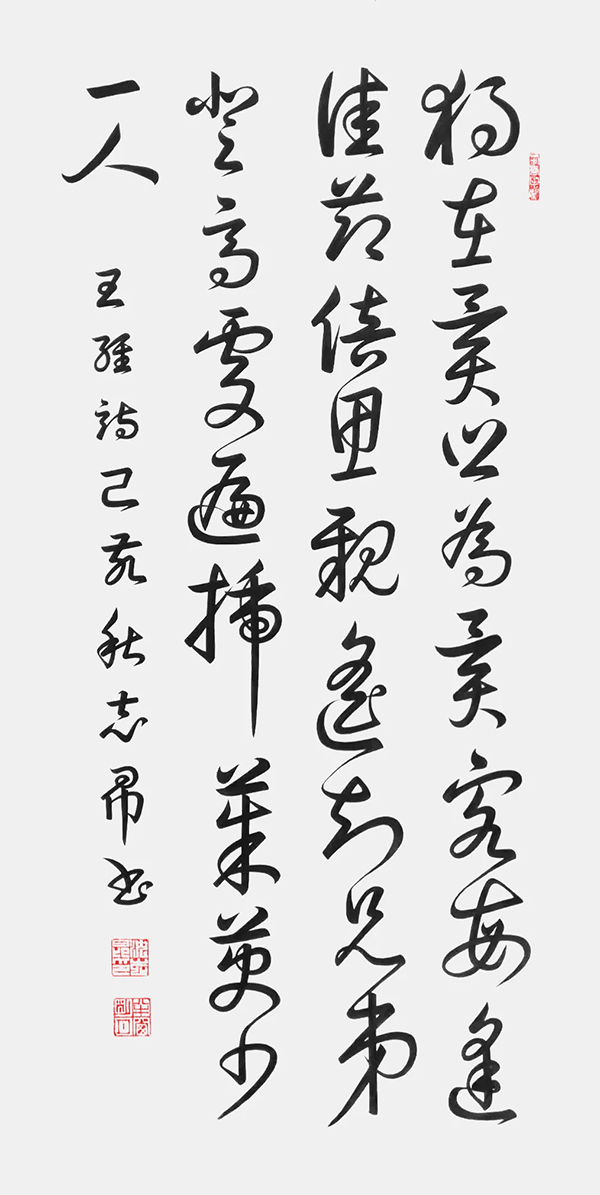 獨在異鄉為異客每逢
佳節倍思親遙知兄弟
登高處遍插茱萸少
一人 王維詩己亥秋志書